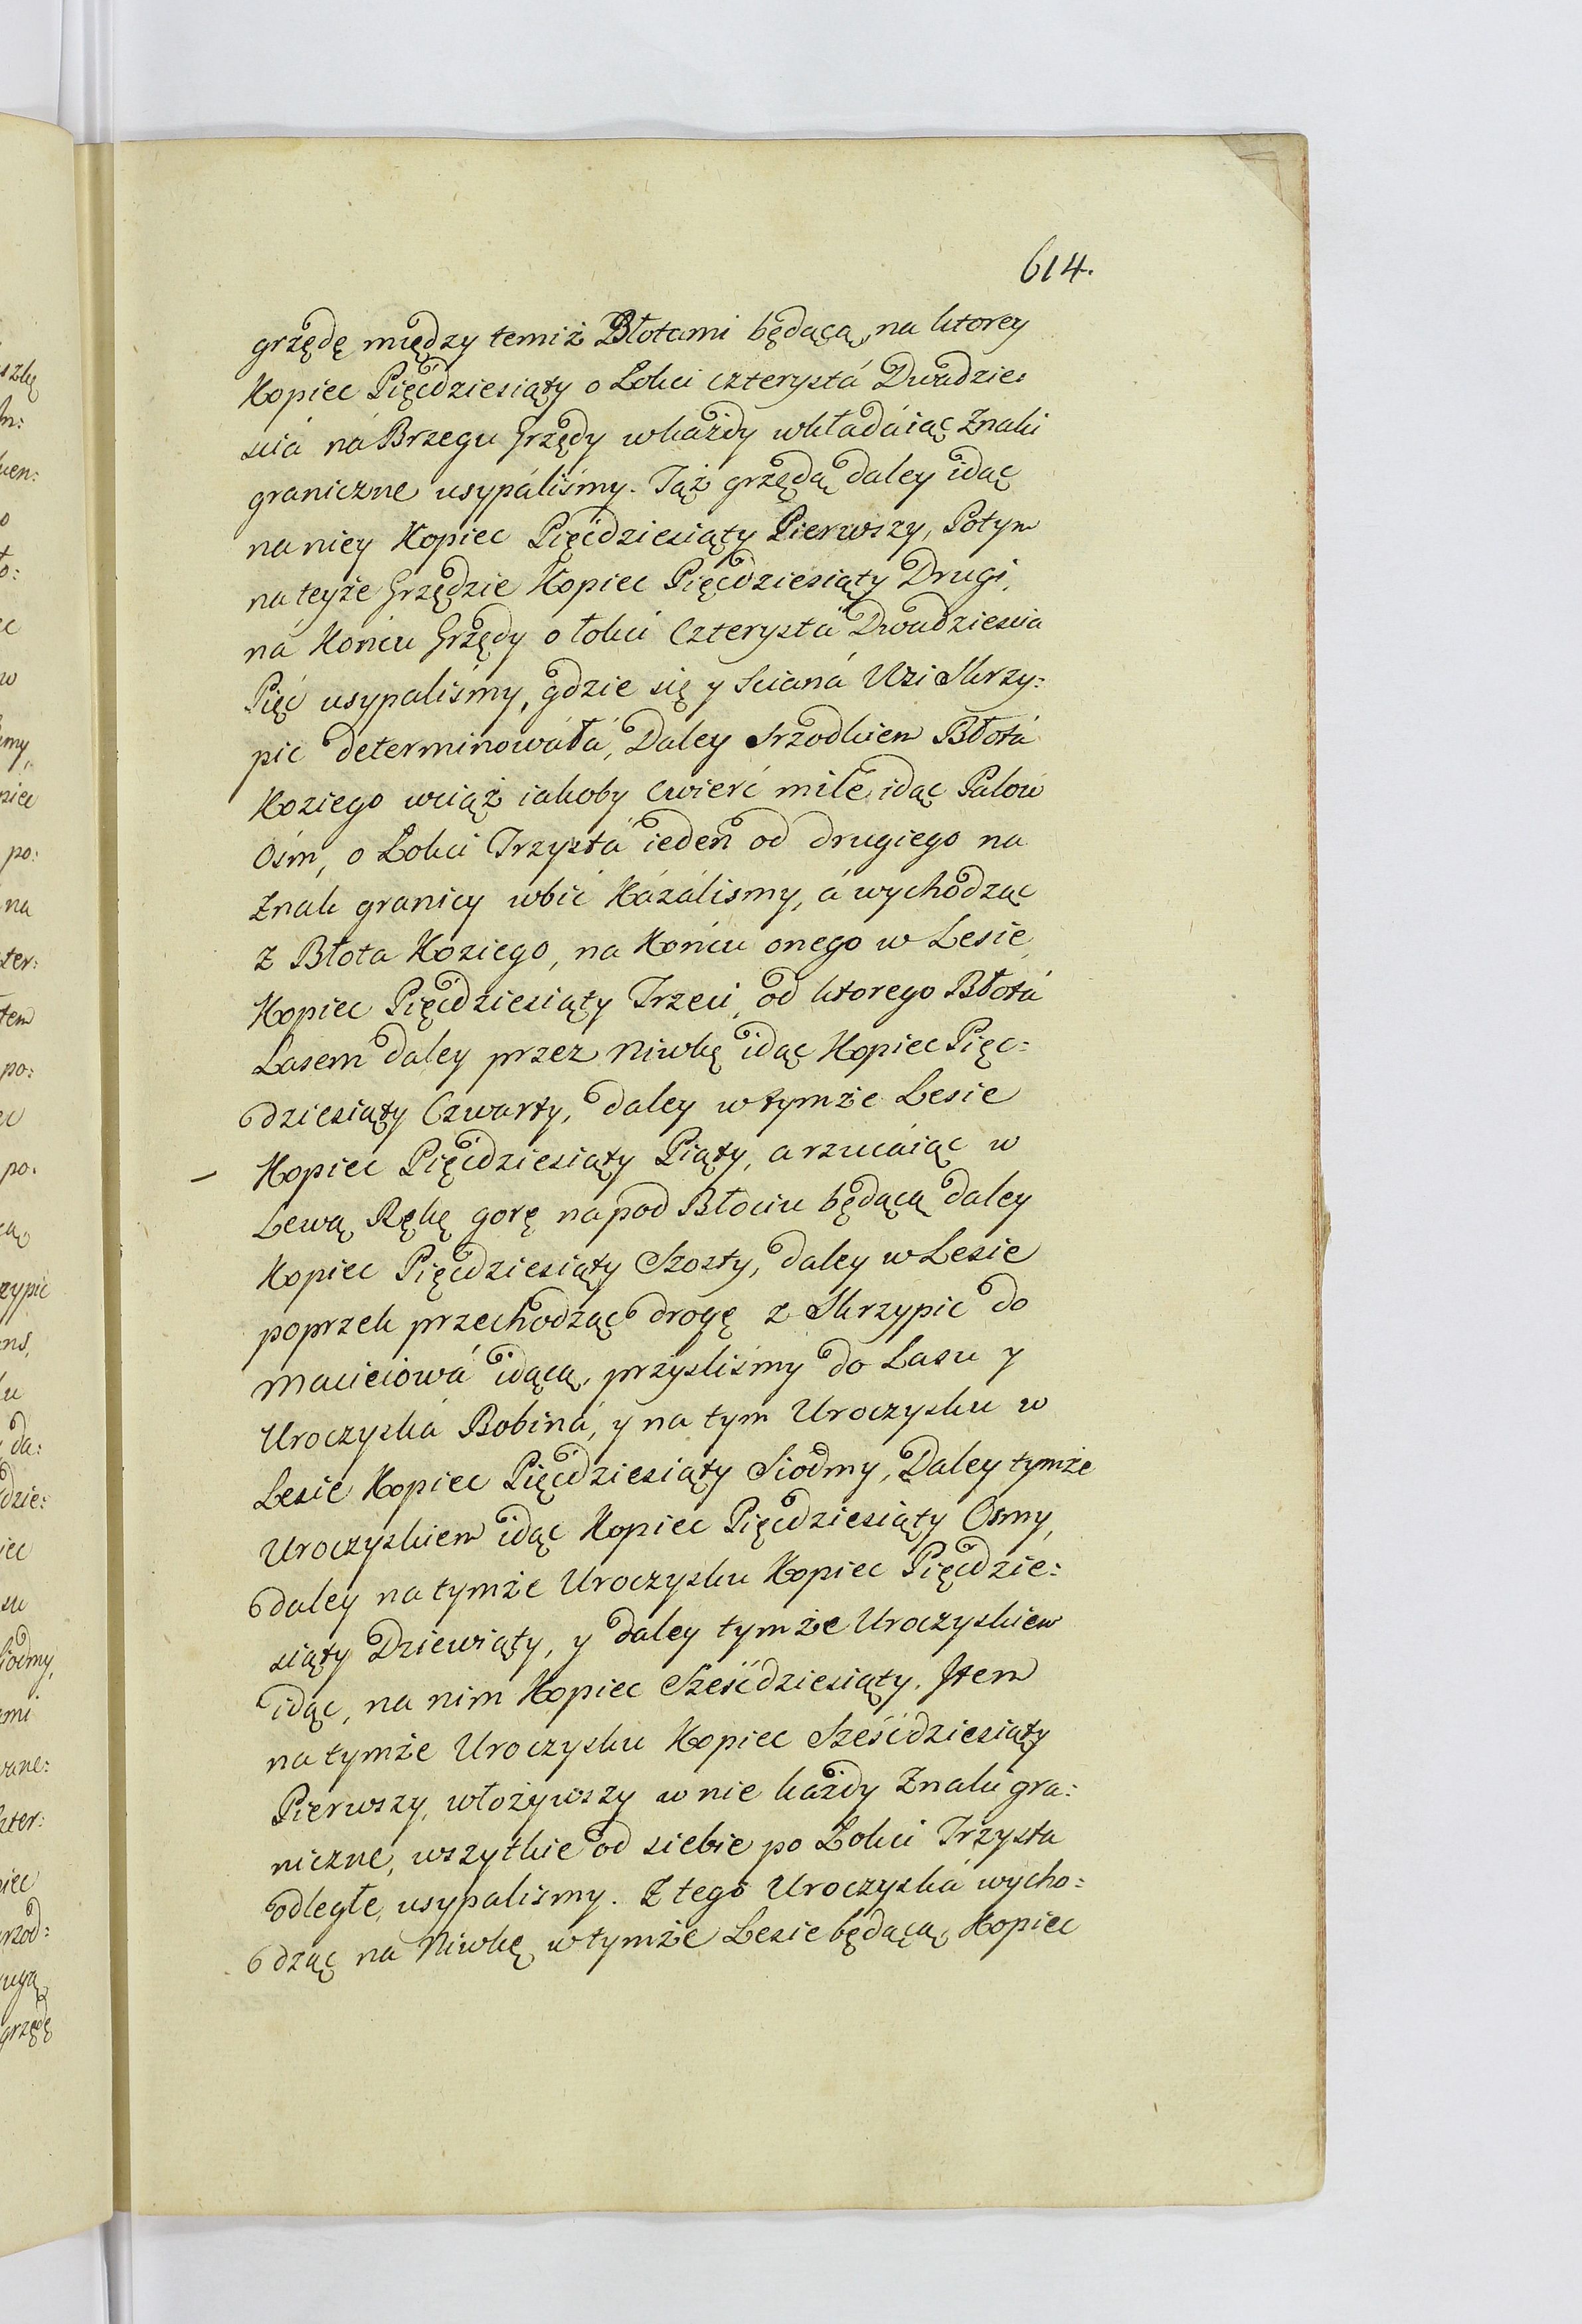 614.
grzędę między temiż Błotami będącą, na ktorey
Kopiec Pięćdziesiąty o Łokci czterystá Dwadzie:
sciá ná Brzegu Grzędy wkażdy wkładáiąc Znaki
graniczne usypáliśmy. Tąż grzędą daley idąc
na niey Kopiec Pięćdziesiąty Pierwszy, Potym
na teyże Grzędzie Kopiec Pięćdziesiąty Drugi,
ná Końcu Grzędy o łokci Czterysta Dwadziescia
Pięć usypaliśmy, gdzie się y Sciana Wsi Skrzy:
pic determinowáłá, Daley Srzodkiem Błotá
Koziego wciąż iakoby cwierć mile idąc Palow
Ośm, o Łokci Trzystá ieden od drugiego na
Znak granicy wbić Kázálismy, á wychodząc
z Błota Koziego, na Końcu onego w Lesie,
Kopiec Pięćdziesiąty Trzeci, od ktorego Błotá
Lasem daley przez Niwkę idąc Kopiec Pięc:
dziesiąty Czwarty, daley w tymże Lesie
Kopiec Pięćdziesiąty Piąty, a rzucáiąc w
Lewą Rękę gorę na pod Błociu będącą daley
Kopiec Pięćdziesiąty Szosty, daley w Lesie
poprzek przechodząc drogę z Skrzypic do
Maciciowá idącą, przysliśmy do Lasu y
Uroczyská Bobiná, y na tym Uroczysku w
Lesie Kopiec Pięćdziesiąty Siodmy, Daley tymże
Uroczyskiem idąc Kopiec Pięćdziesiąty Osmy,
daley na tymże Uroczysku Kopiec Pięćdzie:
siąty Dziewiąty, y daley tymże Uroczyskiem
idąc, na nim Kopiec Sześćdziesiąty. Item
na tymże Uroczysku Kopiec Sześćdziesiąty
Pierwszy, włożywszy w nie każdy Znaki gra:
niczne, wszytkie od siebie po Łokci Trzysta
odległe, usypalismy. Z tego Uroczyská wycho:
dząc na Niwkę w tymże Lesie będącą, Kopiec